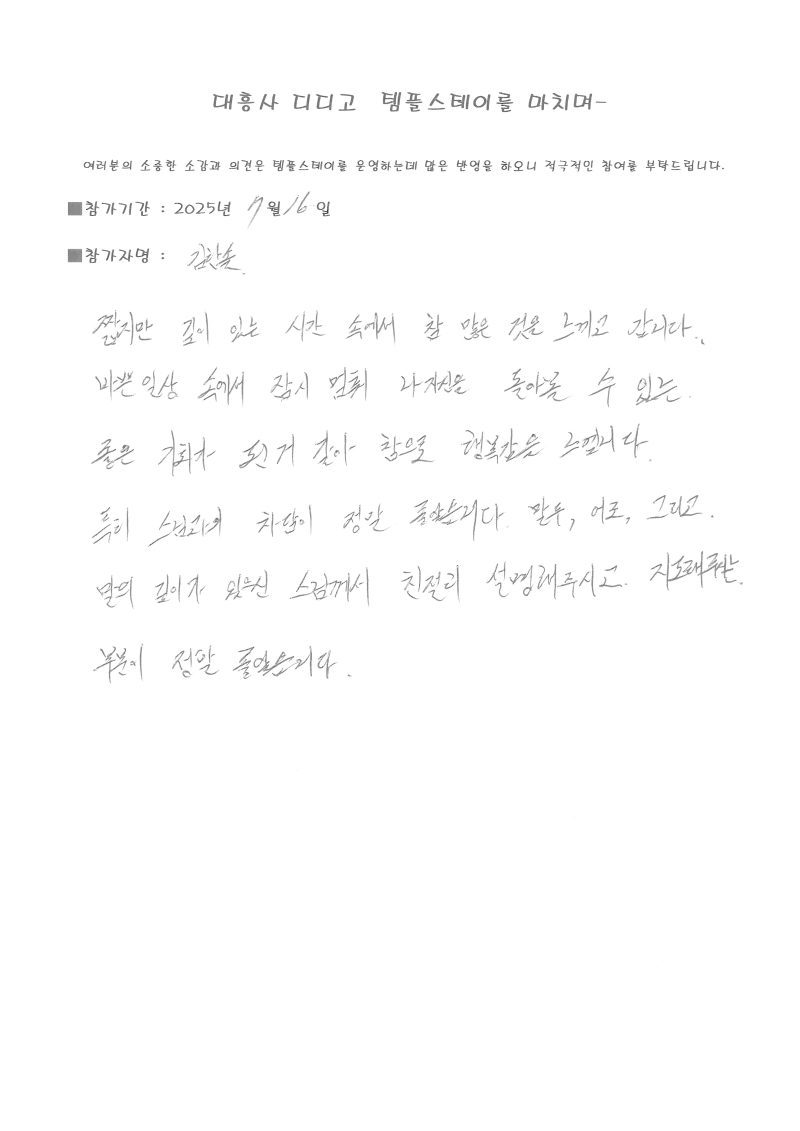 대흥사 디디고 템플스테이를 마치며-
여러분의 소중한 소감과 의견은 템플스테이를 운영하는데 많은 반영을 하오니 적극적인 참여를 부탁드립니다.
■참가기간 : 2025년 7월 16일
■참가자명 : 김한솔
짧지만 깊이 있는 시간 속에서 참 많은 것을 느끼고 갑니다.
바쁜 일상 속에서 잠시 멈춰 나 자신을 돌아볼 수 있는
좋은 기회가 된거 같아 참으로 행복감을 느낍니다.
특히 스님과의 차담이 정말 좋았습니다. 말투, 어조, 그리고
말의 깊이가 있으신 스님께서 친절히 설명해주시고 지도해주시는
부분이 정말 좋았습니다.